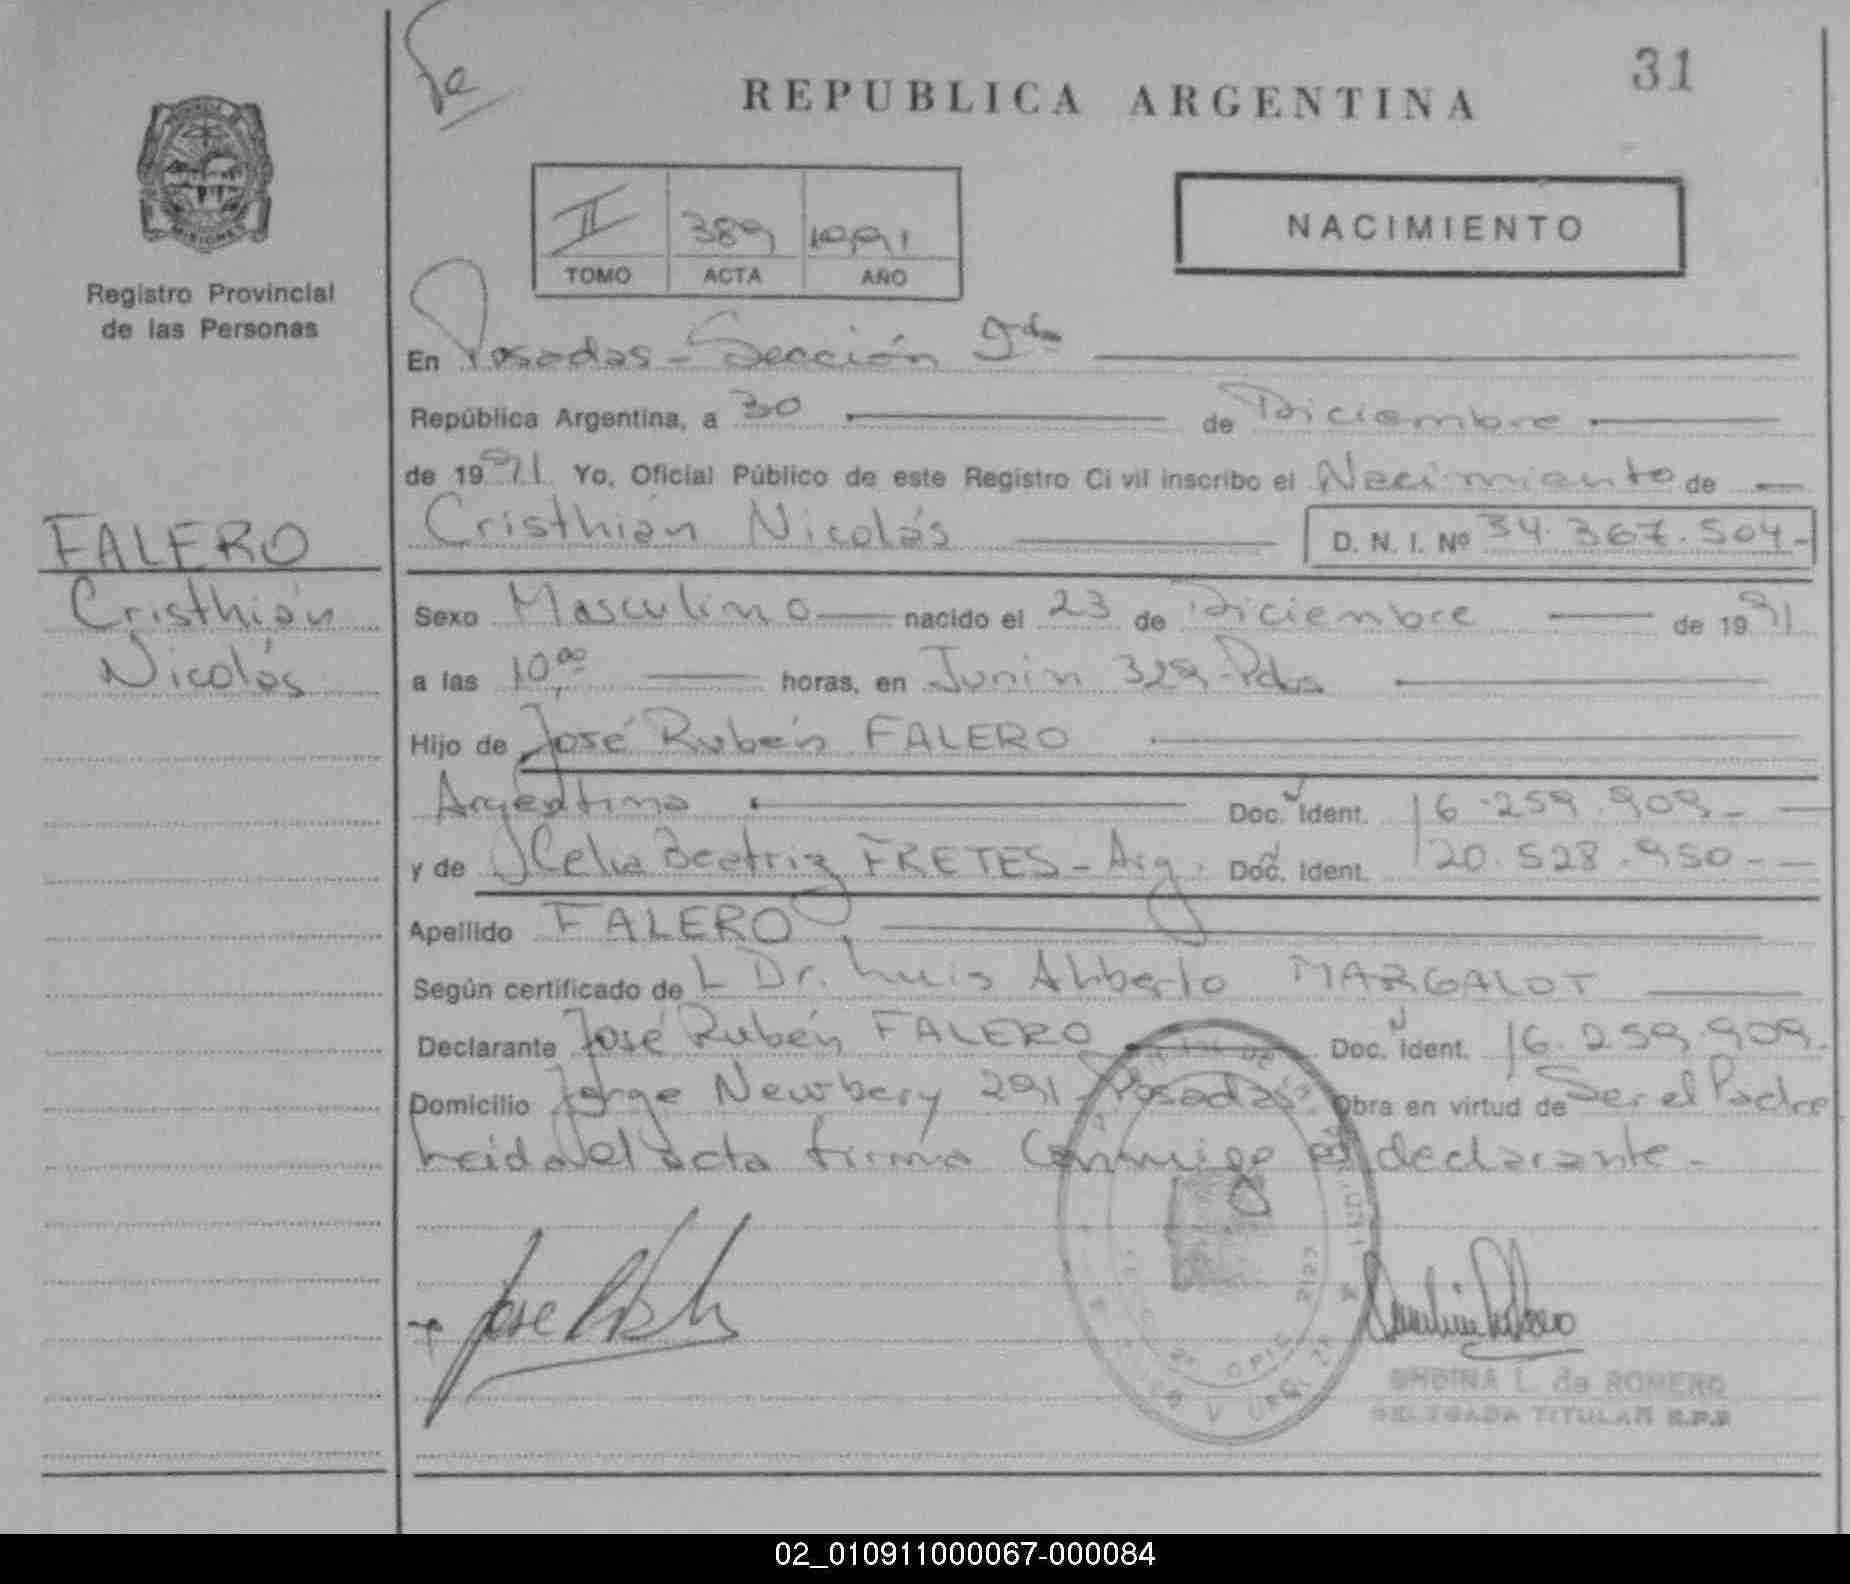 31
REPUBLICA ARGENTINA
MISIONES
Registro Provincial
de las Personas
II 389 1991
TOMO ACTA AÑO
NACIMIENTO
En Posadas - Sección
República Argentina, a 30 de Diciembre
de 1991 Yo, Oficial Público de este Registro Civil inscribo el Nacimiento de
Cristhián Nicolás D. N. I. Nº 34.367.504-
FALERO
Cristhián
Nicolás
Sexo Masculino nacido el 23 de Diciembre de 1991
a las 10,00 horas, en Junín 329-Pdas
Hijo de José Rubén FALERO
Argentino Doc. Ident. 16.259.909-
y de Celia Beatriz FRETES - Arg. Doc. Ident. 20.528.950-
Apellido FALERO
Según certificado de L Dr. Luis Alberto MARGALOT
Declarante José Rubén FALERO Doc. Ident. 16.259.909.
Domicilio Jorge Newbery 291 Posadas Obra en virtud de Ser el Padre
Leida el acta firma Conmigo el declarante.-
José
L. de ROMERO
DELEGADA TITULAR R.P.P
02_010911000067-000084